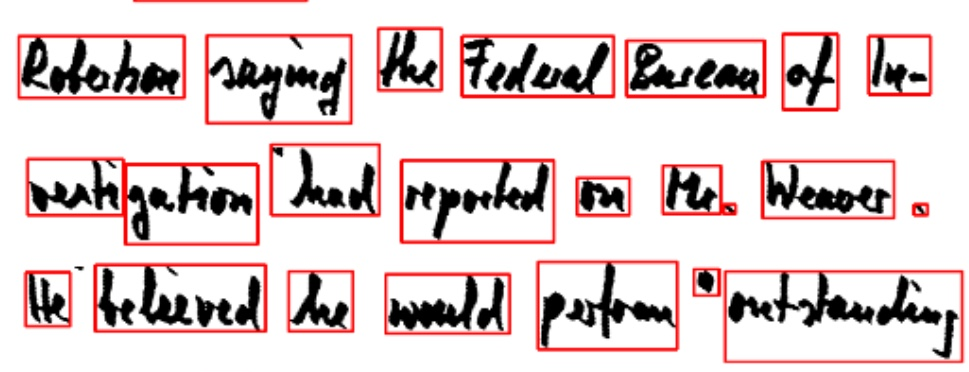 Robertson saying the Federal Bureau of In-
vestigation had reported on Mr. Weaver .
He believed he would perform " outstanding